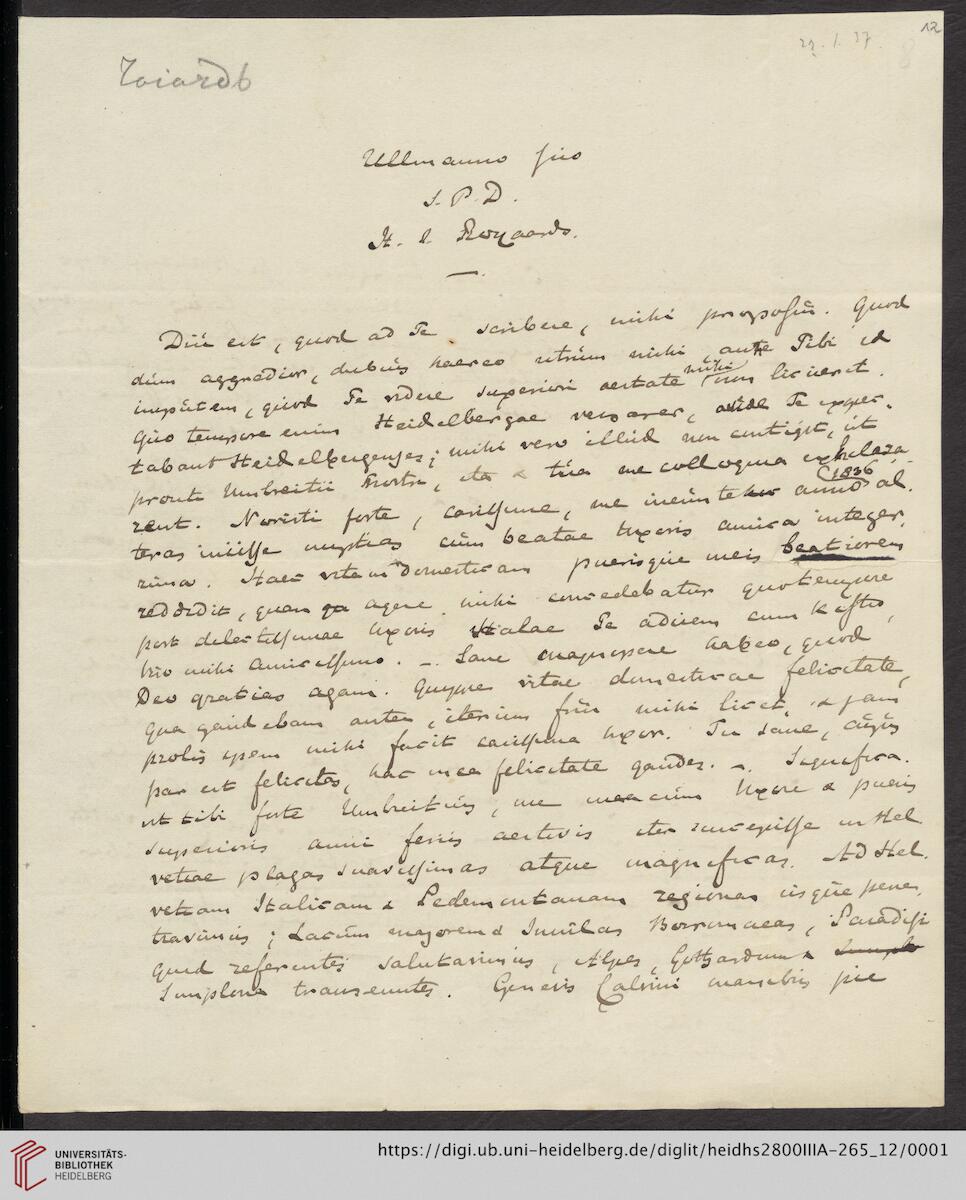 12
29. 1. 37.
8
Ullmanno suo
S. P. D.
H. J. Royaards.
Diu est, quod ad Te scribere, mihi proposui. Quod
dum aggredior, dubius haereo utrum mihi, an Tibi id
imputem, quod Te videre superiori aestate mihi non licuerit.
Quo tempore enim Heidelbergae versarer, Te expec-
tabant Heidelbergenses; mihi vero illud non contigit, ut
prouti Umbreitii nostri, ita & tua me colloquia exhilara-
rent. Noristi forte, carissime, me ineunte anno (1836) al-
teras iniisse nuptias cum beatae Uxoris amica integer-
rima. Haec vitam domesticam puerisque meis beatiorem
reddidit, quam agere mihi concedebatur quo tempore
post delectissimae Uxoris Te adirem cum Kistio,
trio mihi amicissimo. – Sane magnopere habeo, quod
Deo gratias agam. Quippe vitae domesticae felicitate,
qua gaudebam antea, iterum frui mihi licet, & jam
prolis spem mihi facit carissima Uxor. Tu sane, cujus
par est felicitas, hac mea felicitate gaudes. –. Significa-
vit tibi forte Umbreitius, me cum Uxore & pueris
superioris anni feriis aestivis iter suscepisse in Hel
vetiae plagas suavissimas atque magnificas. Ad Hel-
vetiam Italicam & Pedemontanam regionem usque pene-
travimus; Lacum majorem & Insulas Borromaeas, Paradisi
quid referentes salutavimus, Alpes, Gotthardum &
Simplona transeuntes. Genevis Calvini manibus pie
UNIVERSITÄTS-
BIBLIOTHEK
HEIDELBERG
https://digi.ub.uni-heidelberg.de/diglit/heidhs2800IIIA-265_12/0001